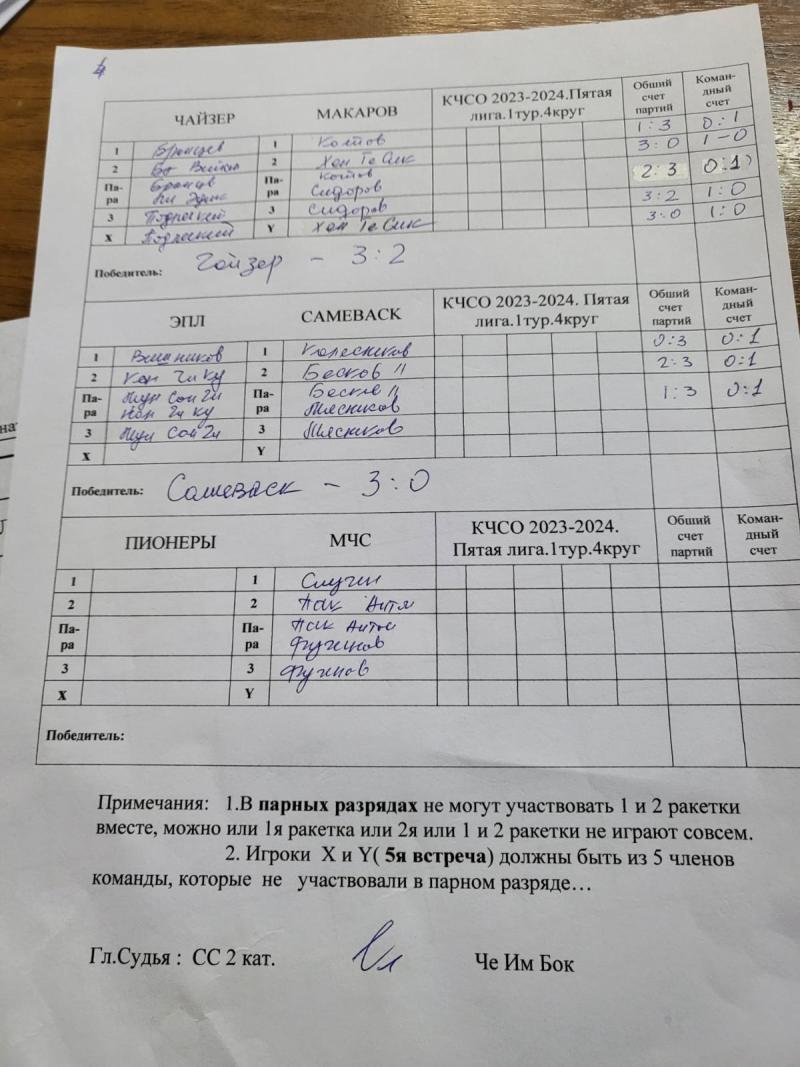 4
ЧАЙЗЕР МАКАРОВ КЧСО 2023-2024.Пятая лига.1тур.4круг Общий счет партий Коман-дный счет
1 Бранцев 1 Котов 1:3 0:1
2 2 Хен Те Сик 3:0 1-0
Па-ра Бранцев Па-ра Котов Сидоров 2:3 0:1
3 3 Сидоров 3:2 1:0
X Y Хен Те Сик 3:0 1:0
Победитель: Чайзер - 3:2
ЭПЛ САМЕВАСК КЧСО 2023-2024. Пятая лига.1тур.4круг Общий счет партий Коман-дный счет
1 Вишников 1 Колесников 0:3 0:1
2 Кон Чи Ку 2 Бесков 2:3 0:1
Па-ра Мун Сон Ги Кон Чи Ку Па-ра Бесков Мясников 1:3 0:1
3 Мун Сон Ги 3 Мясников
X Y
Победитель: Самеваск - 3:0
ПИОНЕРЫ МЧС КЧСО 2023-2024. Пятая лига.1тур.4круг Общий счет партий Коман-дный счет
1 1
2 2 Пак
Па-ра Па-ра Пак
3 3
X Y
Победитель:
Примечания: 1.В парных разрядах не могут участвовать 1 и 2 ракетки
вместе, можно или 1я ракетка или 2я или 1 и 2 ракетки не играют совсем.
2. Игроки X и Y( 5я встреча) должны быть из 5 членов
команды, которые не участвовали в парном разряде…
Гл.Судья : СС 2 кат. Че Им Бок